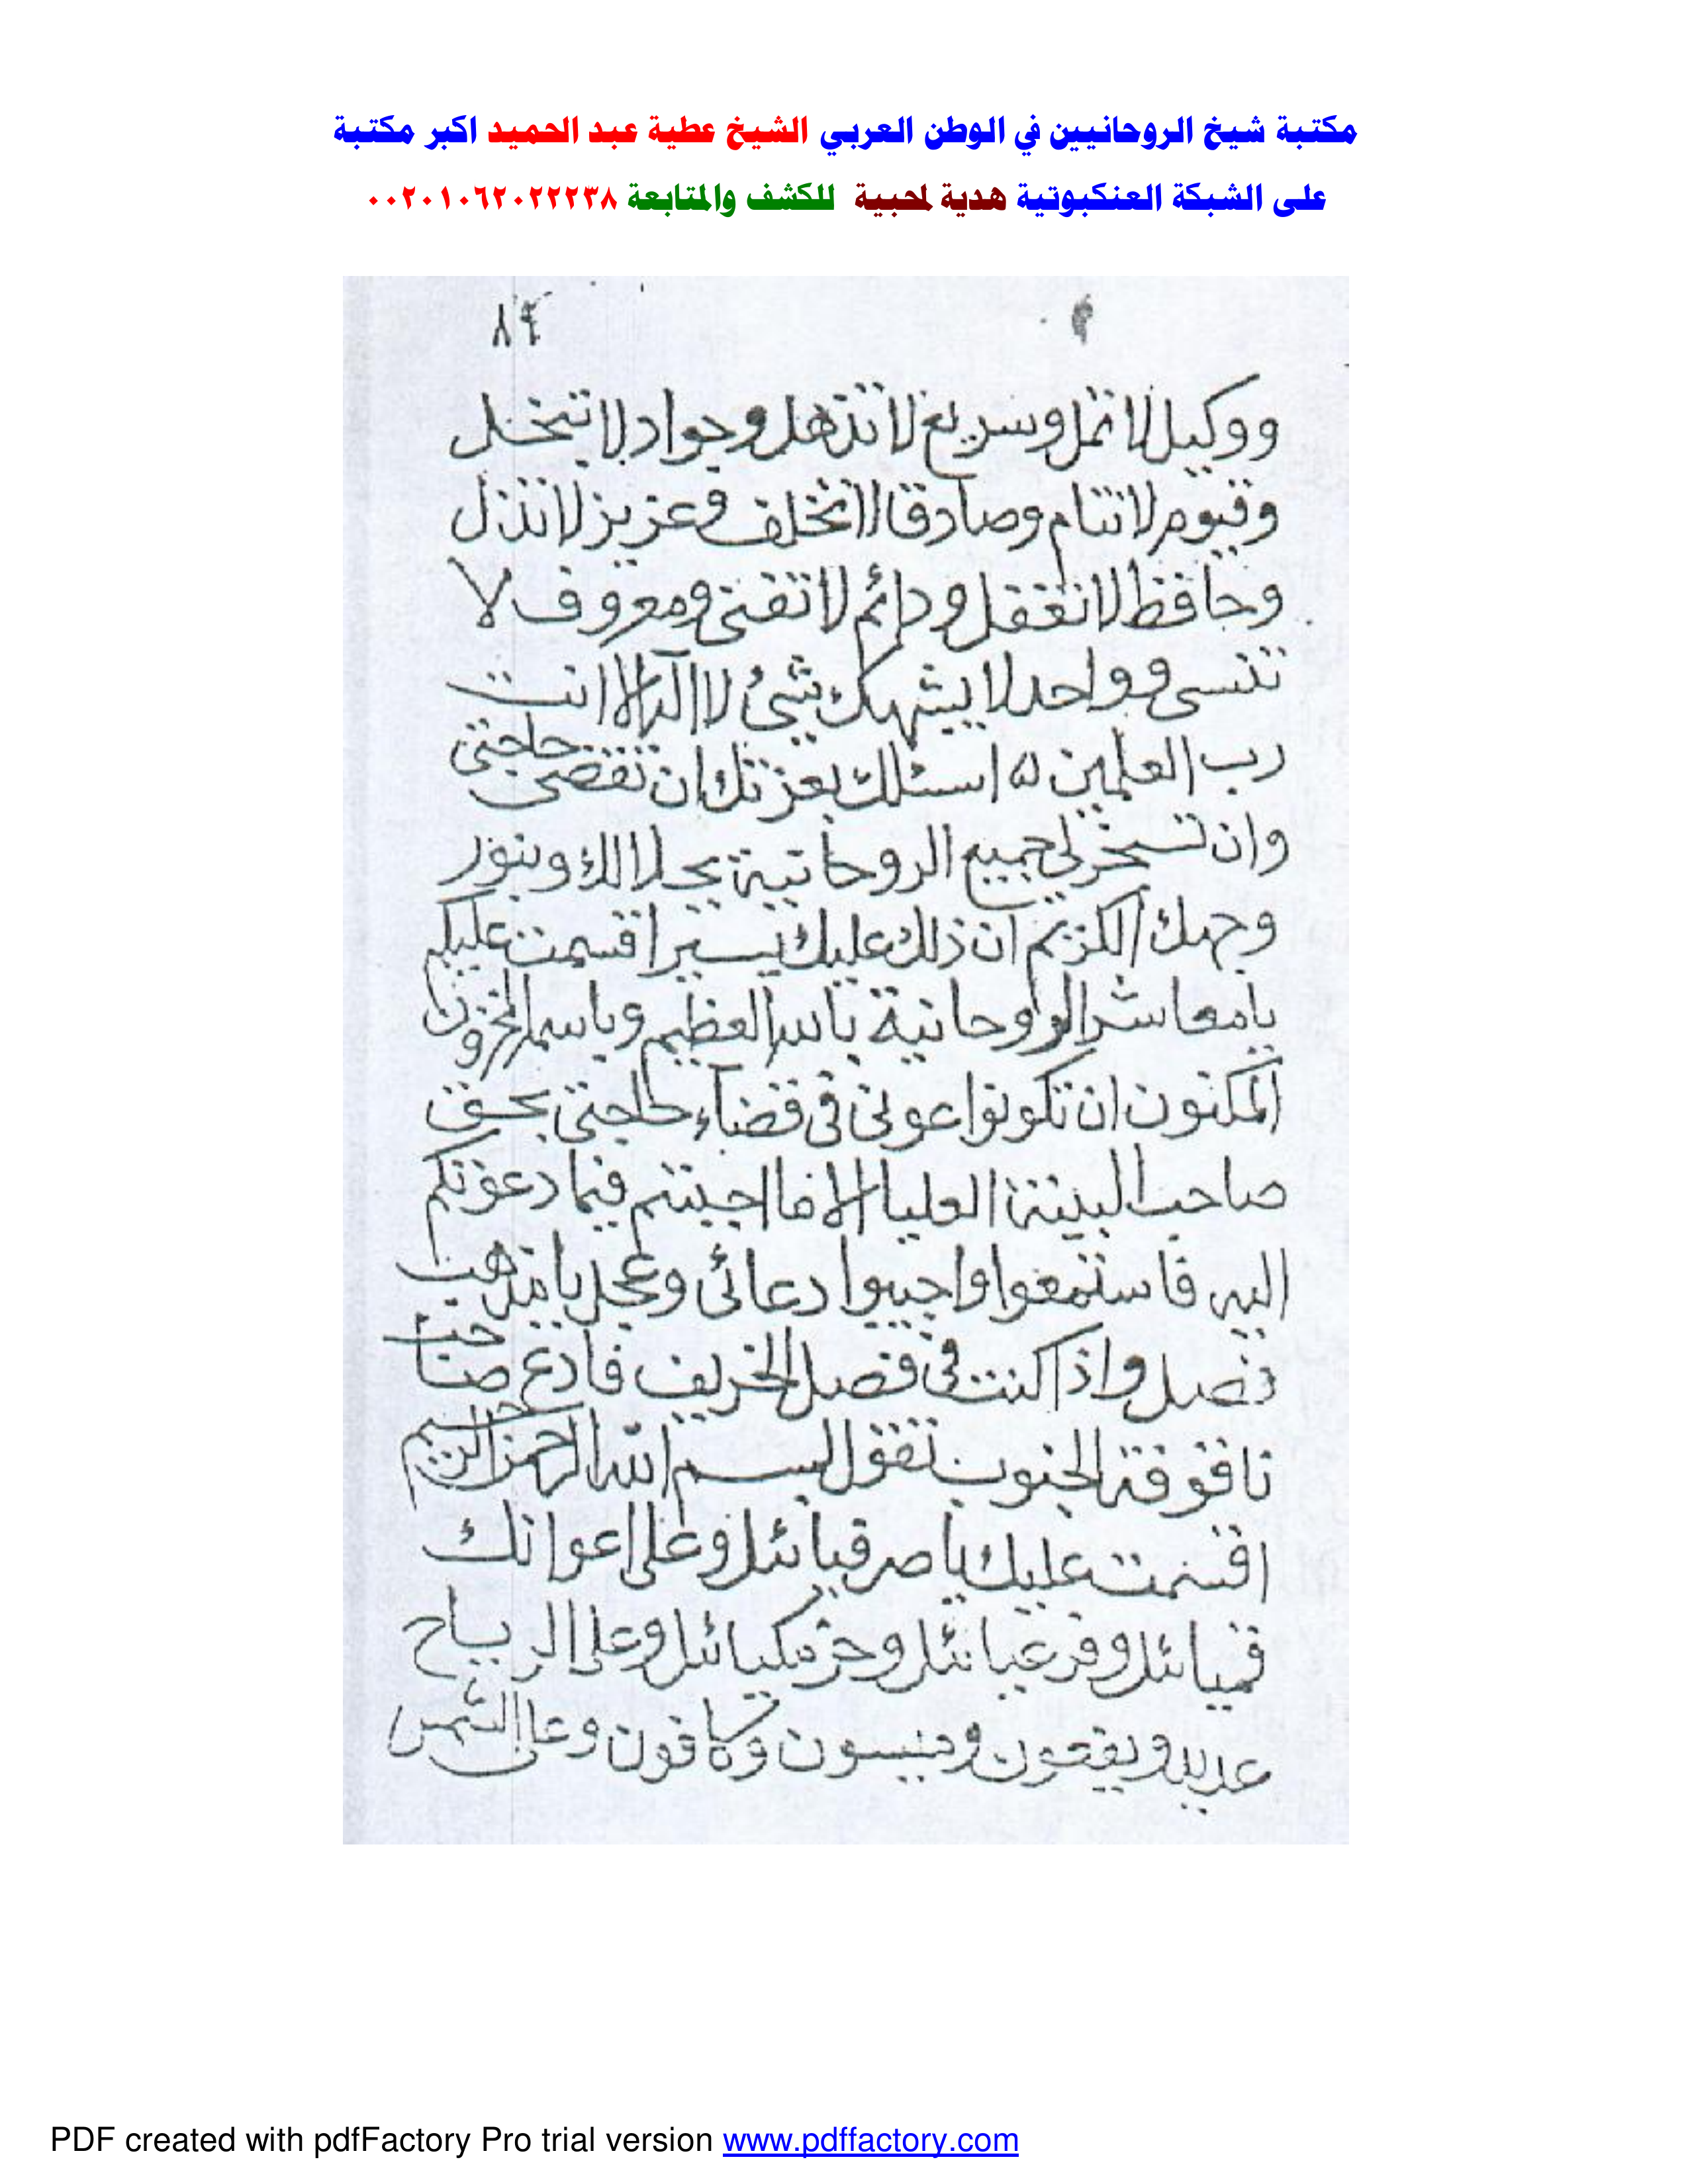 مكتبة شيخ الروحانيين في الوطن العربي الشيخ عطية عبد الحميد اكبر مكتبة
على الشبكة العنكبوتية هدية لمحبية للكشف والمتابعة ٠٠٢٠١٠٦٢٠٢٢٢٣٨
ووكيل لا تمل وسريع لا تذهل وجواد لا تبخل
وقيوم لا تنام وصادقا لا تخلف وعزيز لا تذل
وحافظ لا تغفل ودائم لا تفنى ومعروف لا
تنسى وواحد لا يشبهك شئ لا اله الا انت
رب العلمين اسئلك بعزتك ان تقضى حاجتى
وان تسخر لى جميع الروحانية بجلالك وبنور
وجهك الكريم ان ذلك عليك يسير اقسمت عليكم
يا معاشر الروحانية باسم العظيم وباسم المخزون
المكنون ان تكونوا عونى فى قضاء حاجتى بحق
صاحب البينة العليا الا ما اجبتم فيما دعوتكم
اليه فاستمعوا واجيبوا دعائى وعجل يا مذهب
فصل واذا كنت فى فصل الخريف فادع صاحب
ناقوقة الجنوب تقول بسم الله الرحمن الرحيم
اقسمت عليك يا صرفيائل وعلى اعوانك
وعلى الرياح
وعلى الشمس
PDF created with pdfFactory Pro trial version www.pdffactory.com